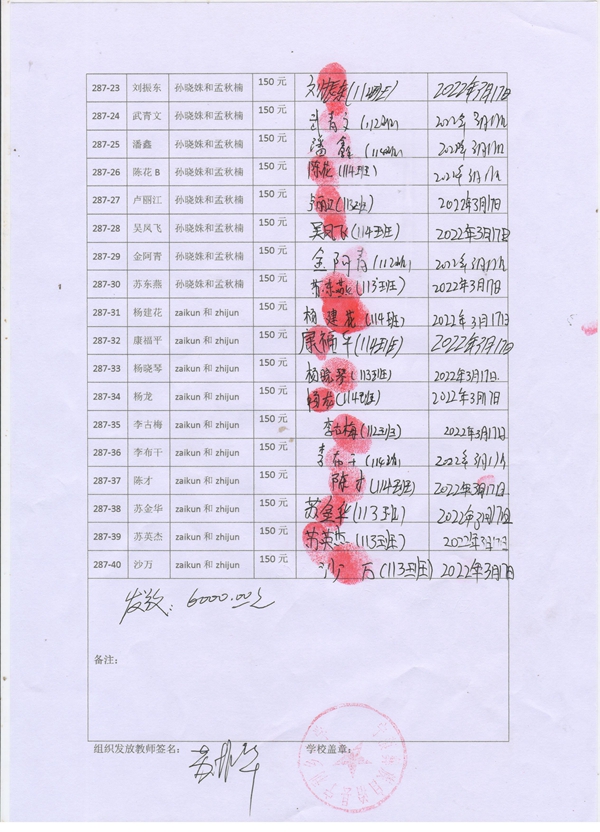 287-23 刘振东 孙晓姝和孟秋楠 150 元 刘振东(112班) 2022年3月17日
287-24 武青文 孙晓姝和孟秋楠 150 元 武青文(112班) 2022年3月17日
287-25 潘鑫 孙晓姝和孟秋楠 150 元 潘鑫(114班) 2022年3月17日
287-26 陈花 B 孙晓姝和孟秋楠 150 元 陈花(114班) 2022年3月17日
287-27 卢丽江 孙晓姝和孟秋楠 150 元 卢丽江(113班) 2022年3月17日
287-28 吴凤飞 孙晓姝和孟秋楠 150 元 吴凤飞(114班) 2022年3月17日
287-29 金阿青 孙晓姝和孟秋楠 150 元 金阿青(112班) 2022年3月17日
287-30 苏东燕 孙晓姝和孟秋楠 150 元 苏东燕(113班) 2022年3月17日
287-31 杨建花 zaikun 和 zhijun 150 元 杨建花(114班) 2022年3月17日
287-32 康福平 zaikun 和 zhijun 150 元 康福平(114班) 2022年3月17日
287-33 杨晓琴 zaikun 和 zhijun 150 元 杨晓琴(113班) 2022年3月17日.
287-34 杨龙 zaikun 和 zhijun 150 元 杨龙(114班) 2022年3月17日
287-35 李古梅 zaikun 和 zhijun 150 元 李古梅(112班) 2022年3月17日
287-36 李布干 zaikun 和 zhijun 150 元 李布干(114班) 2022年3月17日
287-37 陈才 zaikun 和 zhijun 150 元 陈才(114班) 2022年3月17日
287-38 苏金华 zaikun 和 zhijun 150 元 苏金华(113班) 2022年3月17日
287-39 苏英杰 zaikun 和 zhijun 150 元 苏英杰(113班) 2022年3月17日
287-40 沙万 zaikun 和 zhijun 150 元 沙万(113班) 2022年3月17日
发放: 6000.00元
备注:
组织发放教师签名: 学校盖章: